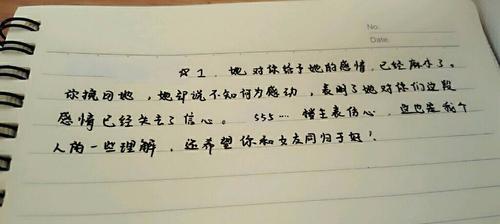 No.
Date.
☆1. 她对你给予她的感情,已经麻木了。
你挽回她,她却说不知何为感动,表明了她对你们这段
感情已经失去了信心。 555… 楼主表伤心,这也是我个
人的一些理解,还希望你和女友同归于好!